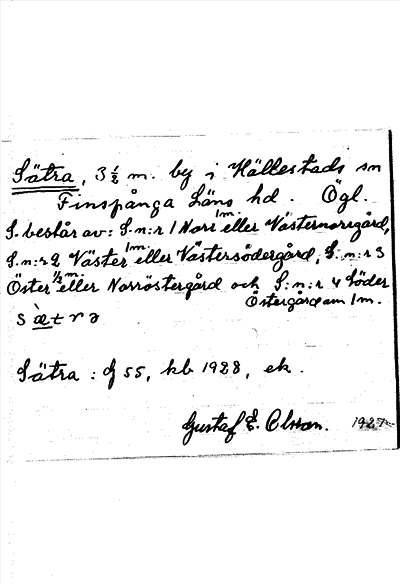 Sätra, 3 1/2 m. by i Hällestads sn
Finspånga Läns hd. Ögl.
S. består av: S. n:r 1 Norr 1m. eller Västernorrgård,
S. n:r 2 Väster 1m. eller Västersödergård, S. n:r 3
Öster 1/2 m. eller Norröstergård och S. n:r 4 Söder
Östergård om 1 m.
s æ̀ t r ə
Sätra: J 55, kb 1928, ek.
Gustaf E. Olsson. 1927